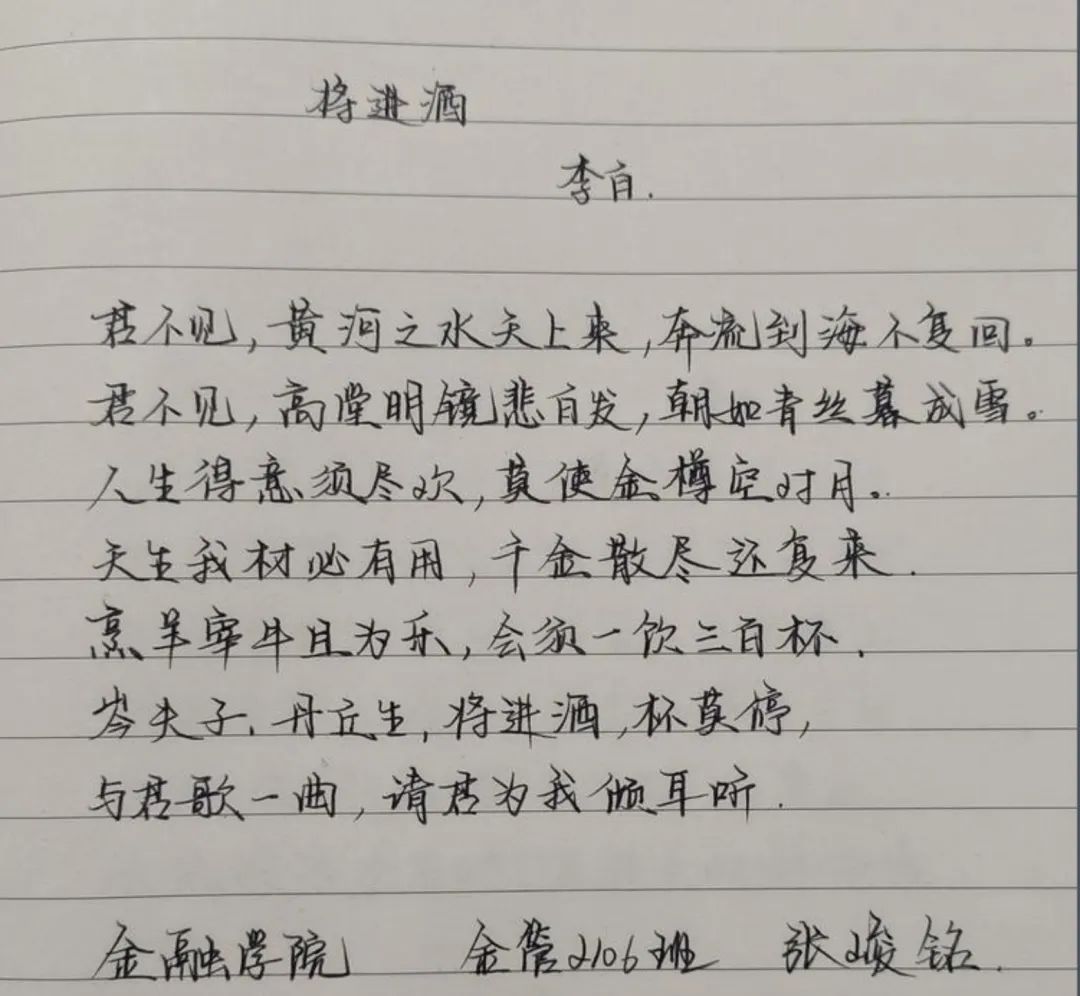 将进酒
李白.
君不见,黄河之水天上来,奔流到海不复回。
君不见,高堂明镜悲白发,朝如青丝暮成雪。
人生得意须尽欢,莫使金樽空对月。
天生我材必有用,千金散尽还复来.
烹羊宰牛且为乐,会须一饮三百杯.
岑夫子,丹丘生,将进酒,杯莫停,
与君歌一曲,请君为我倾耳听.
金融学院 金管2106班 张峻铭.